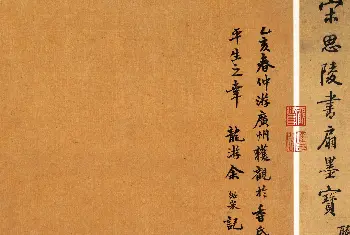 宋思陵書扇墨寶
乙亥春仲游廣州獲觀於香氏
平生之幸 龍游余紹宋記